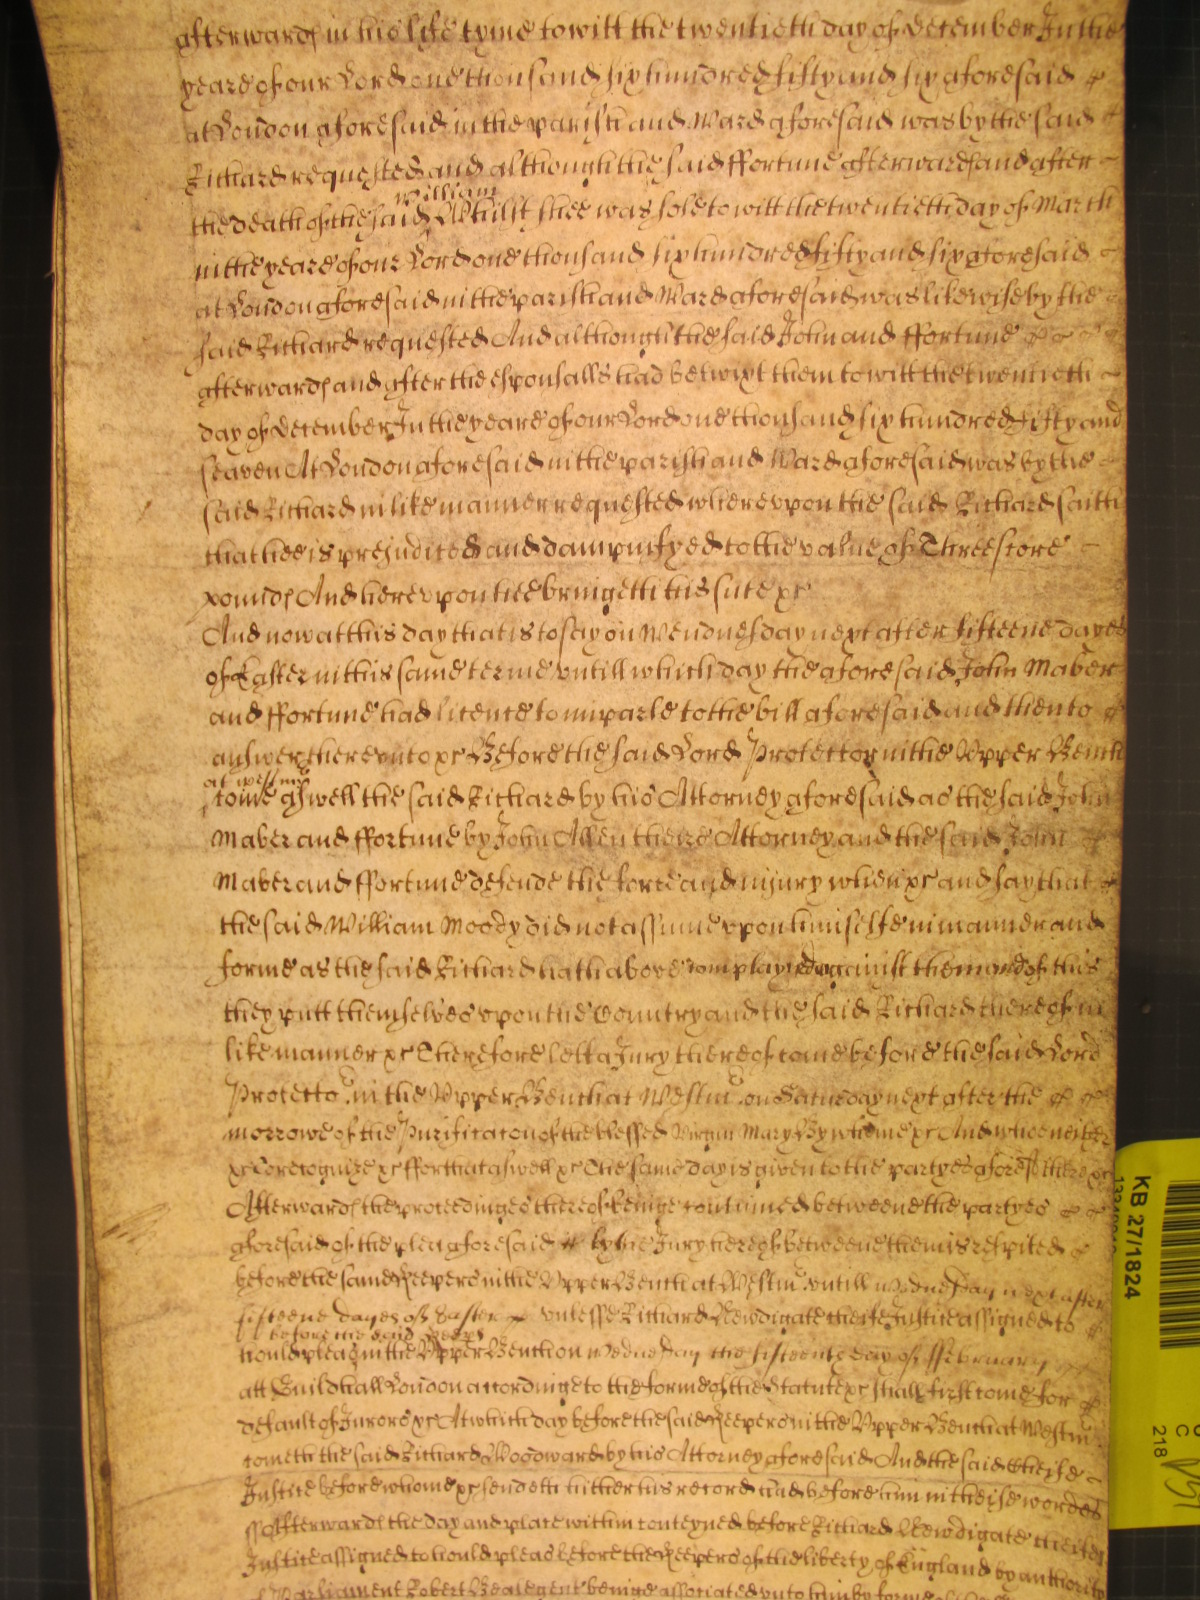 afterwards in his life tyme to witt the twentieth day of December In the
yeare of our Lord one thousand six hundred fifty and six aforesaid
at London aforesaid in the parish and Ward aforesaid was by the said
Richard requested and although the said ffortune afterwards and after
William
the death of the said Whilst shee was sole to witt the twentieth day of March
in the yeare of our Lord one thousand six hundred fifty and six aforesaid
at London aforesaid in the parish and Ward aforesaid was likewise by the
said Richard requested And although the said John and ffortune
afterwards and after the esponsalls had betwixt them to witt the twentieth
day of December In the yeare of our Lord one thousand six hundred fifty and
seaven At London aforesaid in the parish and Ward aforesaid was by the
said Richard in like manner requested wherevpon the said Richard saith
that hee is prejudiced and dampnifyed to the value of Threescore
pounds And herevpon hee bringeth his sute &c
And now at this day that is to say on Wendnesday next after fifteene dayes
of Easter in this same terme vntill which day the aforesaid John Maber
and ffortune had licence to imparle to the bill aforesaid and then to
answer therevnto &c Before the said Lord Protector in the Vpper Bench
at Westmr
come aswell the said Richard by his Attorney aforesaid as the said John
Maber and ffortune by John Allen theire Attorney and the said John
Maber and ffortune defende the force and injury when &c and say that
the said William Moody did not assume vpon himselfe in manner and
forme as the said Richard hath above complayned against them and of this
they putt themselves vpon the Country and the said Richard thereof in
like manner &c Therefore lett a Jury thereof come before the said Lord
Protector in the Vpper Bench at Westmr on Saturday next after the
morrowe of the Purificacon of the blessed Virgin Mary By whome &c And whoe neither
&c To recognize &c ffor that aswell &c The same day is given to the partyes aforesd there &c
Afterwards the proceedinges thereof beinge continued betweene the partyes
aforesaid of the plea aforesaid by the Jury thereof betweene them is respited
before the same Keepers in the Vpper Bench at Westmr vntill Wednesday next after
fifteene dayes of Easter vnlesse Richard Newdigate Justice assigned to
before the said Keepers
hould pleas in the Vpper Bench on Wednesday the fifteenth day of ffebruary
att Guildhall London accordinge to the forme of the Statute &c shall first come for
default of Jurors &c At which day before the said Keepers in the Vpper Bench at Westmr
cometh the said Richard Woodward by his Attorney aforesaid And the said cheife
Justice before whome &c sendeth hither his record had before him in theise wordes
ss Afterwards the day and place within conteyned before Richard Newdigate cheife
Justice assigned to hould pleas before the Keepers of the liberty of England by authority
of Parliament Robert Beale gent beinge associated vnto him by forme of
KB 27/1824
218